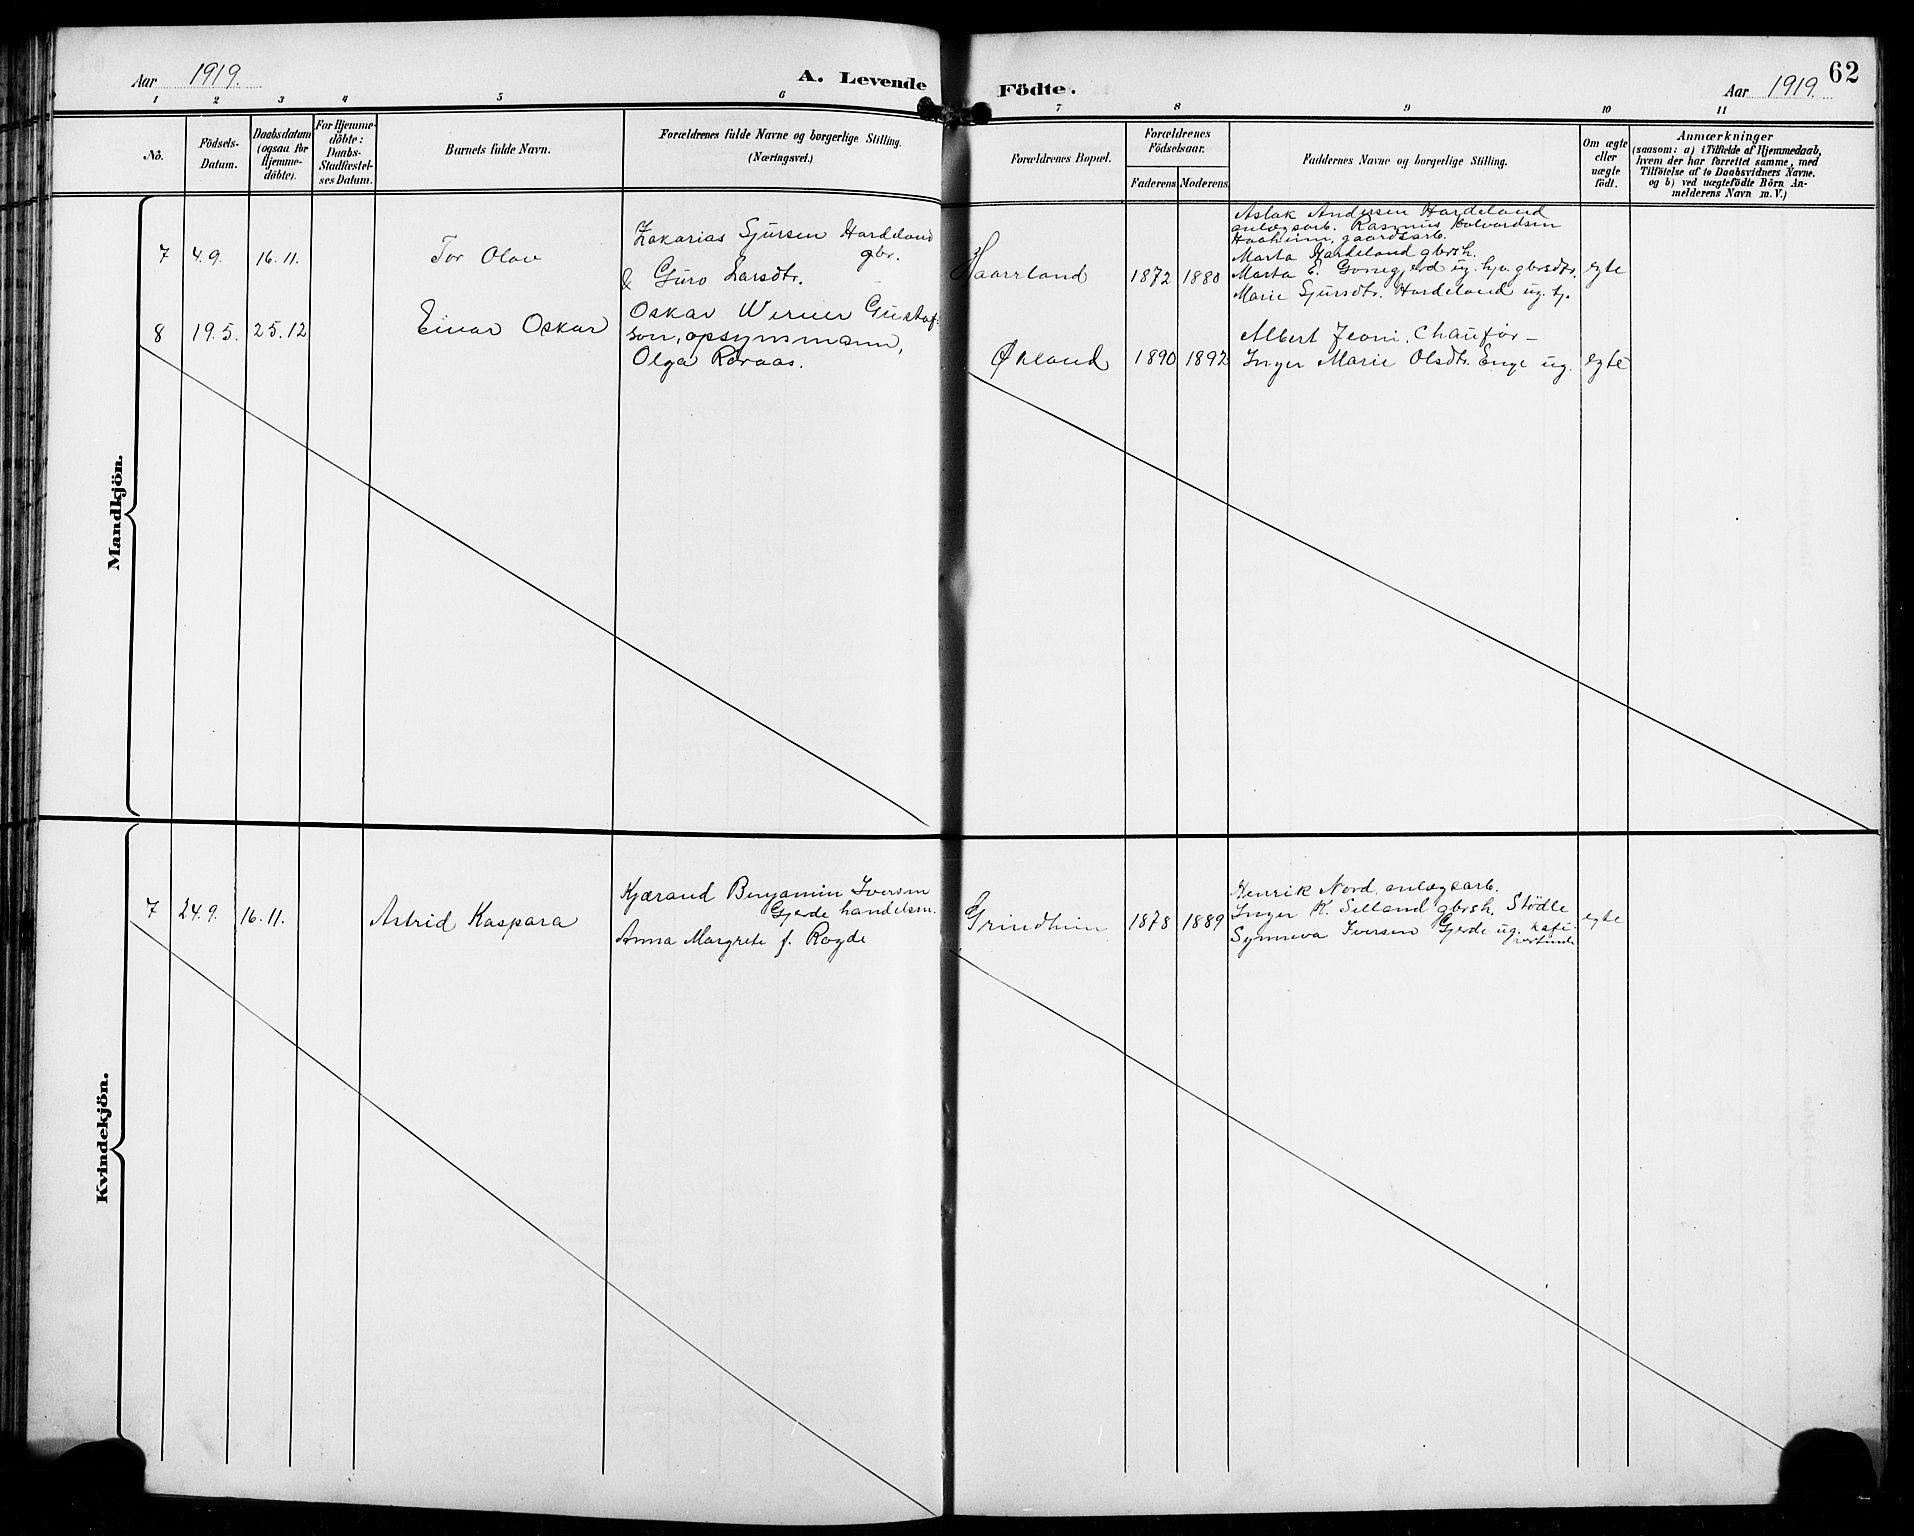 Aar 1919. A. Levende
Födte. Aar 1919. 62
1 2 3 4 5 6 7 8 9 10 11
No.
Födsels-
Datum.
Daabsdatum
(ogsaa for
Hjemme-
döbte).
For Hjemme-
döbte:
Daabs-
Stadfæstel-
ses Datum.
Barnets fulde Navn.
Forældrenes fulde Navne og borgerlige Stilling.
(Næringsvei.)
Forældrenes Bopæl.
Forældrenes
Födselsaar.
Faderens Moderens
Faddernes Navne og borgerlige Stilling.
Om ægte
eller
uægte
födt.
Anmærkninger
(saasom: a) i Tilfælde af Hjemmedaab,
hvem der har forrettet samme, med
Tilföielse af to Daabsvidners Navne.
og b) ved uægtefödte Börn An-
melderens Navn m. V.)
Mandkjön.
7 4.9. 16.11. Tor Olav
Zakarias Sjursen Hardeland
gbr.
& Guro Larsdtr.
Haarrland 1872 1880
Aslak Andersen Hardeland
anlægsarb. Rasmus
Haaheim, gaardsarb.
Marta Hardeland gbrsh.
Marta E. ug. hp. gbrsdtr.
Marie Sjursdtr. Hardeland ug. tj.
egte
8 19.5. 25.12 Einar Oskar
Oskar Werner Gustaf-
son, opsynsmann,
Olga Røraas.
Økland 1890 1892
Albert Jeoni, Chauför –
Inger Marie Olsdtr. Enge ug.
egte
Kvindekjön.
7 24.9. 16.11. Astrid Kaspara
Kjærand Benjamin Iversen
Gjerde handelsm.
Anna Margrete f. Rogde
Grindheim 1878 1889
Henrik Nord, anlægsarb.
Inger K. Selland gbrsh. Stödle
Synneva Iversen Gjerde ug. kafe-
vertinde
egte